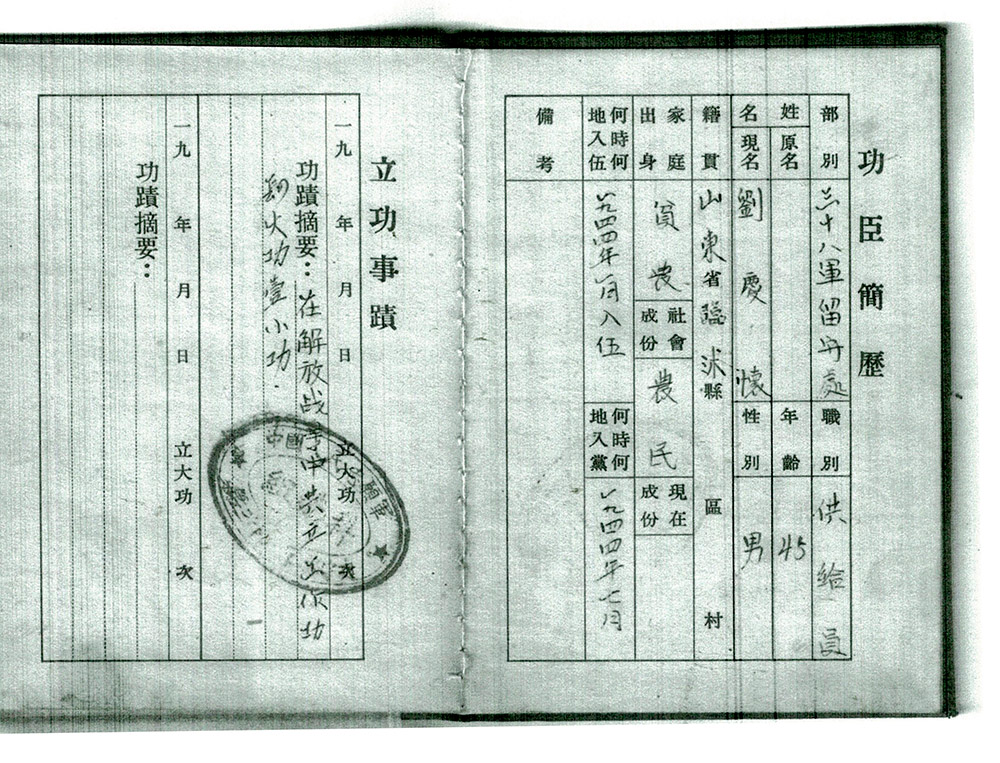 功臣簡歷
部別 三十八軍留守處 職別 供給員
姓名 原名 年齡 45
現名 劉慶懷 性別 男
籍貫 山東省臨沭縣 區 村
家庭出身 貧農 社會成份 農民 現在成份
何時何地入伍 一九四四年一月入伍 何時何地入黨 一九四四年七月
備考
立功事蹟
一九 年 月 日 立大功 次
功蹟摘要：在解放战爭中共立 功
火功壹小功．
一九 年 月 日 立大功 次
功蹟摘要：
中國 願軍